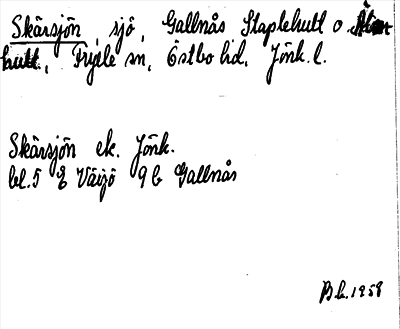 Skärsjön, sjö, Gallnås Staplehult o
hult, Frylle sn, Östbo hd, Jönk. l.
Skärsjön ek. Jönk.
bl. 5 Växjö 9 b Gallnås
B k. 1958